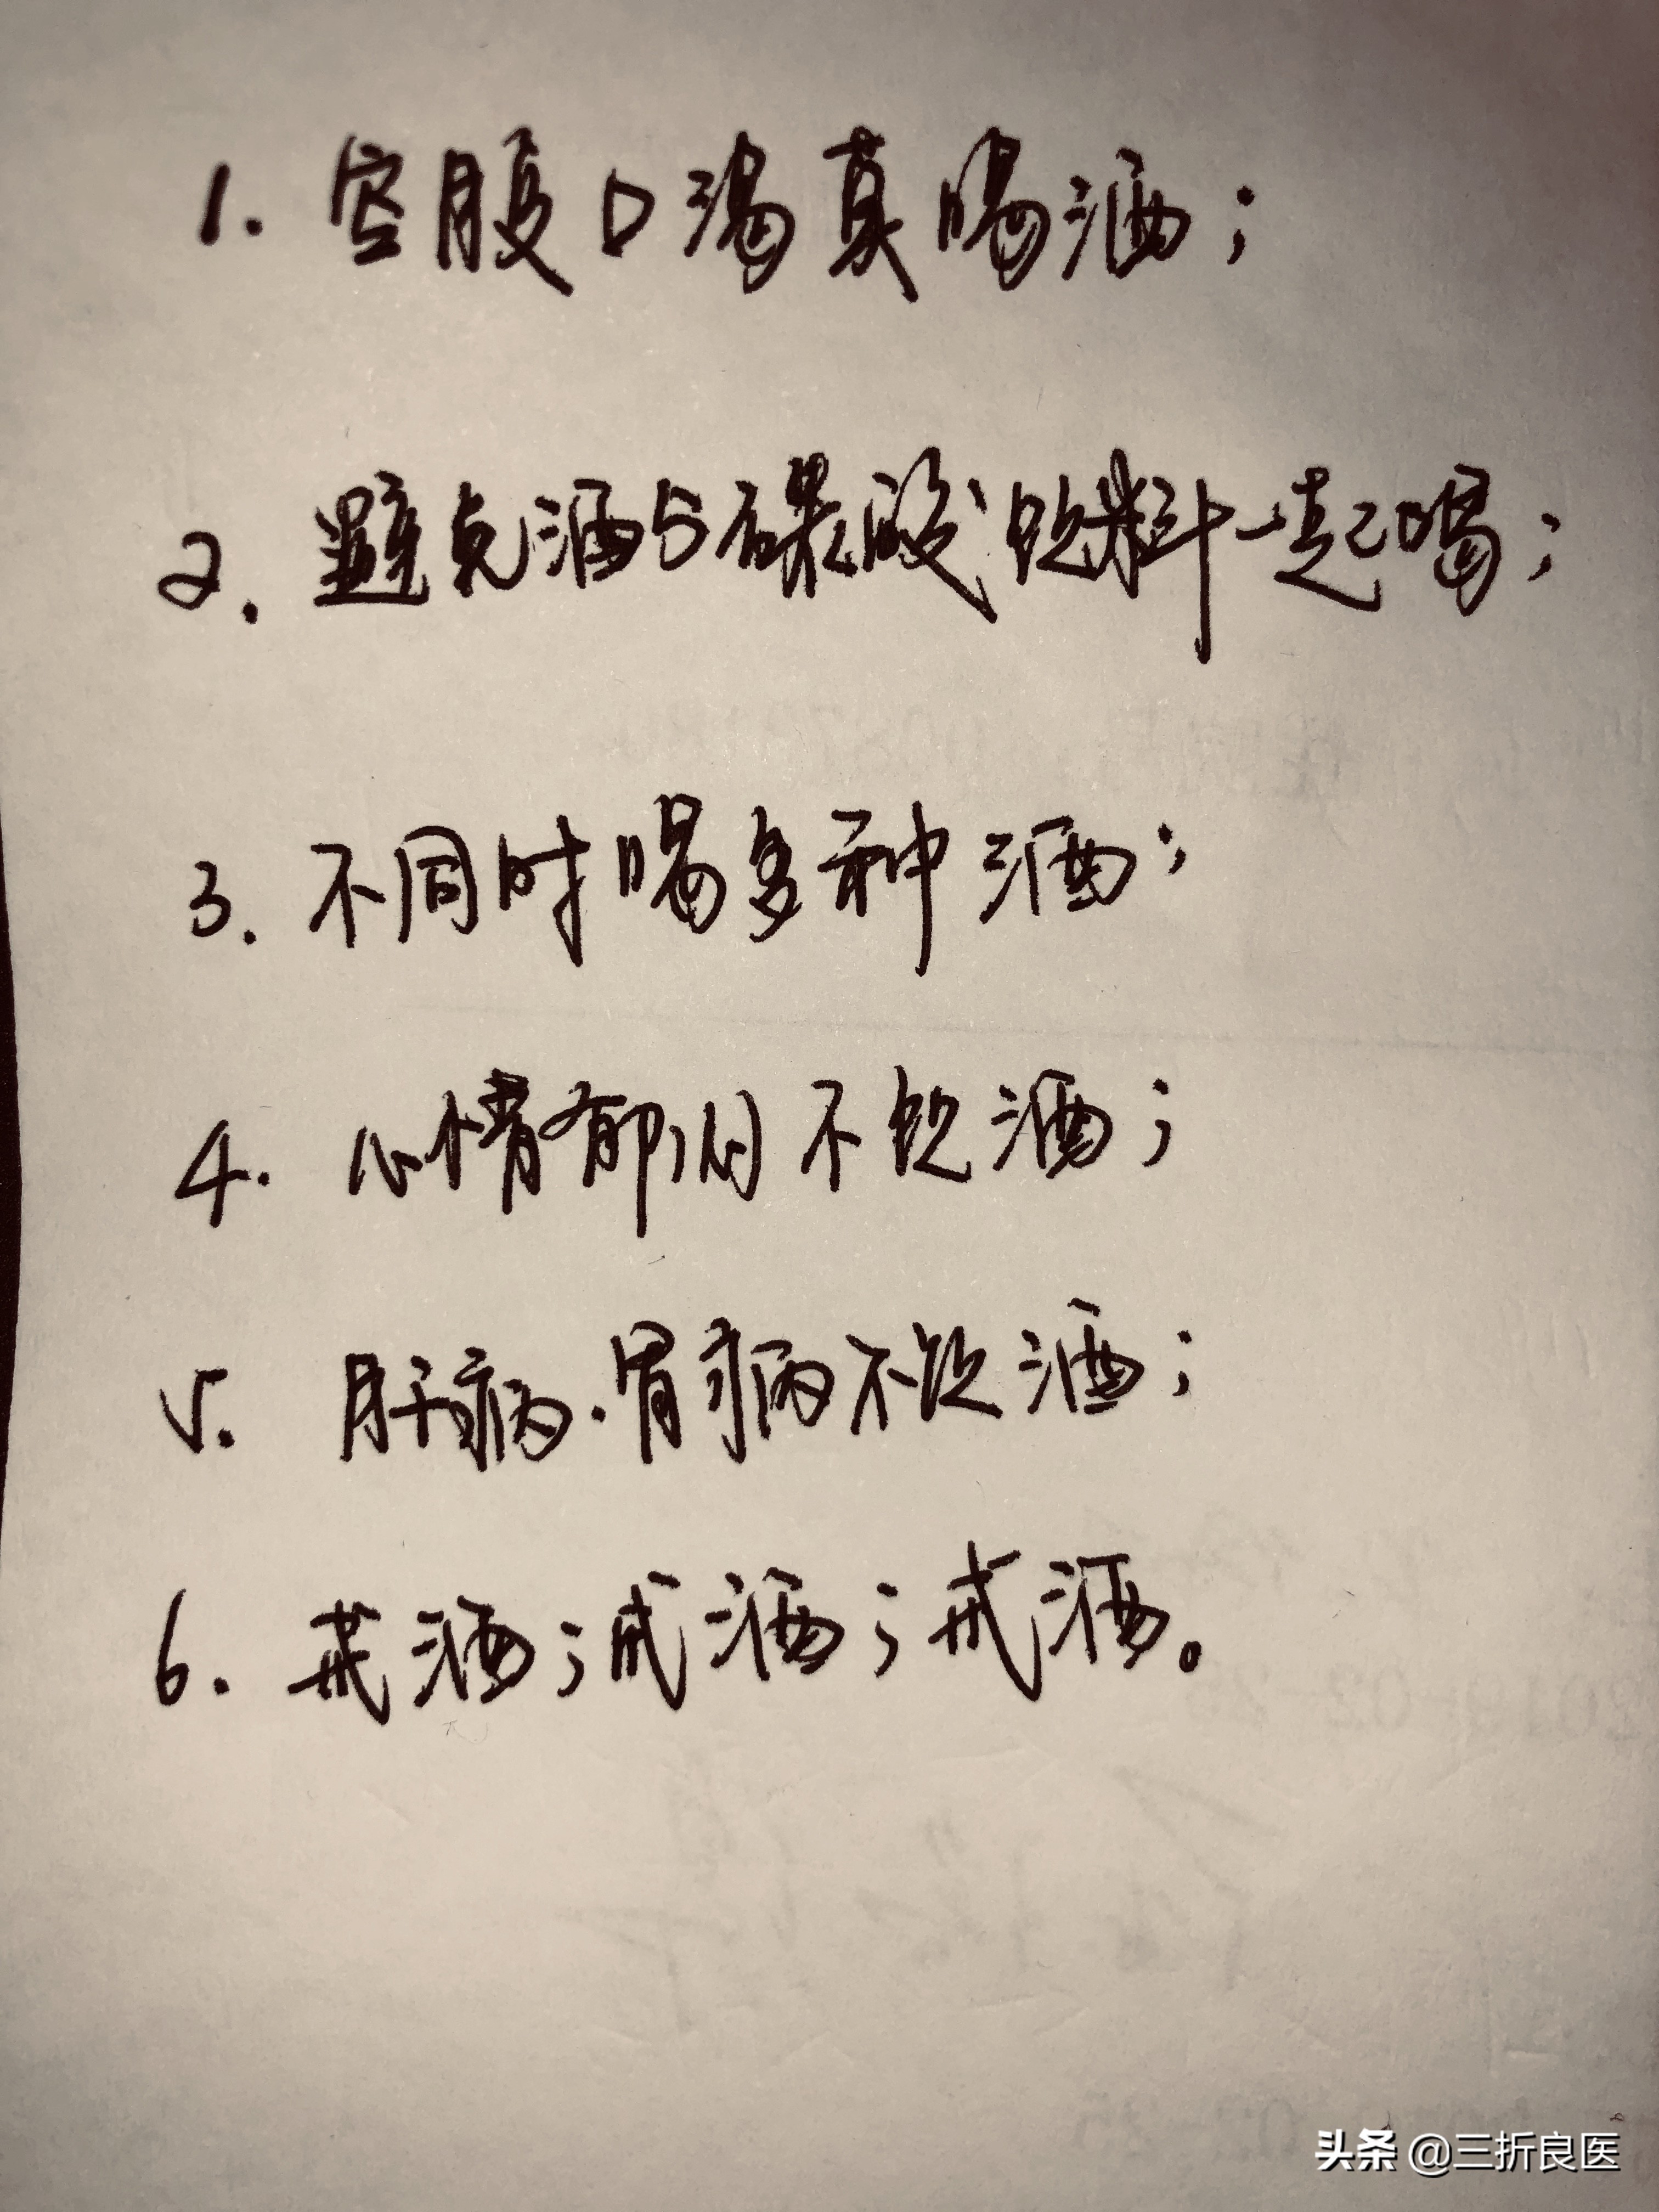 1. 空腹口渴莫喝酒；
2. 避免酒与碳酸饮料一起喝；
3. 不同时喝多种酒；
4. 心情郁闷不饮酒；
5. 肝病.胃病不饮酒；
6. 戒酒；戒酒；戒酒。
头条 @三折良医